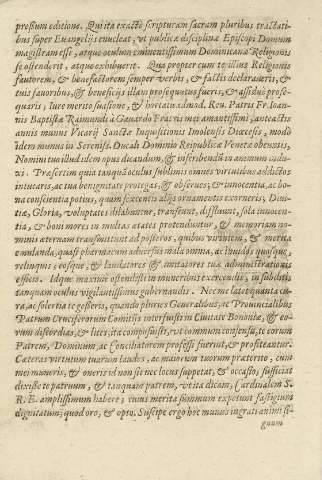 pressum editione. Qui ita exactè scripturam sacram pluribus tractati-
bus super Euangelijs enucleat, vt publicæ disciplinæ Episcopi Domum
magistram esse, atque oculum eminentissimum Dominicanæ Religionis
se ostenderit, atque exhibuerit. Qua propter cum te illius Religionis
fautorem, & benefactorem semper verbis, & factis declaraueris, &
tuis fauoribus, & beneficijs illam prosequutus fueris, & assiduè prose-
quaris; Iure merito suasione, & hortatu admod. Reu. Patris Fr. Ioan-
nis Baptistæ Raimundi à Gauardo Fratris mei amantissimi, ante acteis
annis munus Vicarij Sanctæ Inquisitionis Imolensis Diæcesis, modò
idem munus in Serenis. Ducali Dominio Reipublicæ Venetæ obeuntis,
Nomini tuo id idem opus dicandum, & inscribendum in animum indu-
xi. Præsertim quia tanquã oculus sublimis omnes virtutibus addictos
intuearis, ac tua benignitate protegas, & obserues; & innocentia, ac bo-
na conscientia potius, quam ex externis alijs ornamentis exorneris; Diui-
tiæ, Gloria, voluptates dilabuntur, transeunt, diffluunt, sola innocen-
tia, & boni mores in multas ætates protenduntur, & memoriam no-
minis æternam transmittunt ad posteros, quibus virtutem, & merita
æmulanda, quasi pharmacum aduersus mala omnia, ac inuidos quosque,
relinquis; eosque, & laudatores & imitatores tuæ administrationis
efficis. Idque maximè ostendisti in muneribus exercendis; in subditis
tanquam oculus vigilantissimus gubernandis. Nec me latet quanta cu-
ra, ac solertia te gesseris, quando pluries Generalibus, ac Prouincialibus
Patrum Cruciferorum Comitijs interfuisti in Ciuitate Bononiæ, & eo-
rum discordias, & lites ita composuisti, vt communi consensu, te eorum
Patrem, Dominum, ac Conciliatorem professi fuerint, & profiteantur.
Cæteras virtutum tuarum laudes, ac maiorum tuorum prætereo, cum
mei muneris, & oneris id non sit nec locus suppetat, & occasio, sufficiat
dixisse te patruum, & tanquam patrem, vt ita dicam, Cardinalem S.
R. E. amplissimum habere; cuius merita summum expetunt fastigium
dignitatum; quod oro, & opto. Suscipe ergo hoc munus ingrati animi si-
gnum